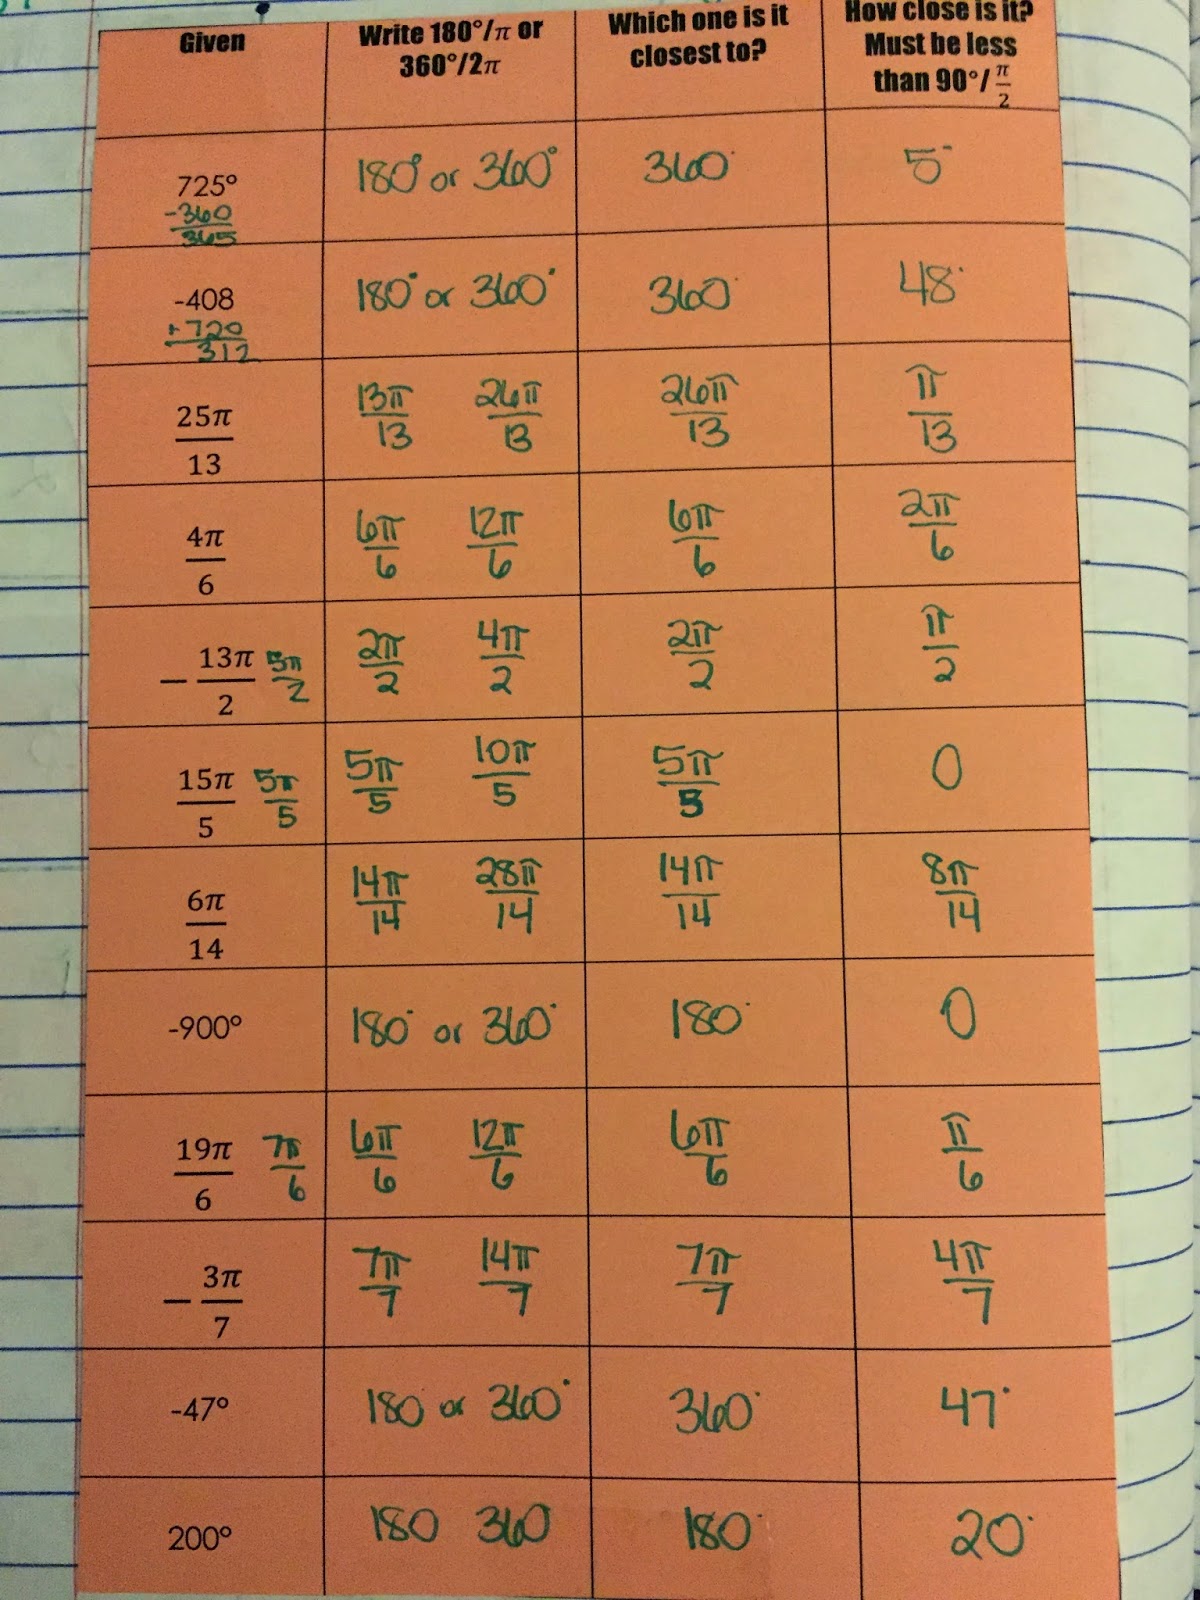 Given
Write 180°/π or
360°/2π
Which one is it
closest to?
How close is it?
Must be less
than 90°/ π/2
725°
-360
365
180° or 360°
360°
5°
-408
+720
312
180° or 360°
360°
48°
25π/13
13π/13 26π/13
26π/13
π/13
4π/6
6π/6 12π/6
6π/6
2π/6
-13π/2 5π/2
2π/2 4π/2
2π/2
π/2
15π/5 5π/5
5π/5 10π/5
5π/5
0
6π/14
14π/14 28π/14
14π/14
8π/14
-900°
180° or 360°
180°
0
19π/6 7π/6
6π/6 12π/6
6π/6
π/6
-3π/7
7π/7 14π/7
7π/7
4π/7
-47°
180 or 360°
360°
47°
200°
180 360
180°
20°